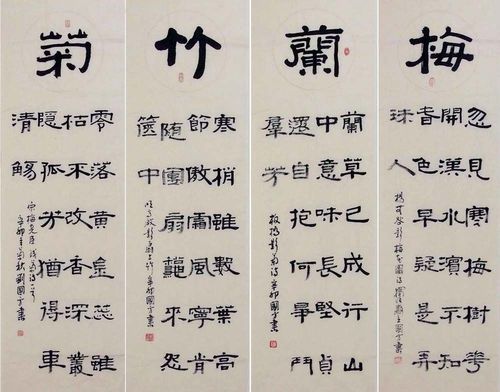 梅
忽見寒梅樹花
開漢水濱不知
春色早疑是弄
珠人
蘭
蘭草已成行山
中意味長堅貞
還自抱何畢鬥
羣芳
竹
寒梢雖數葉高
節傲霜風寧肯
隨團扇龝來怨
篋中
菊
零落黄金蕊雖
枯不改香深叢
隱孤芳猶得奉
清觴